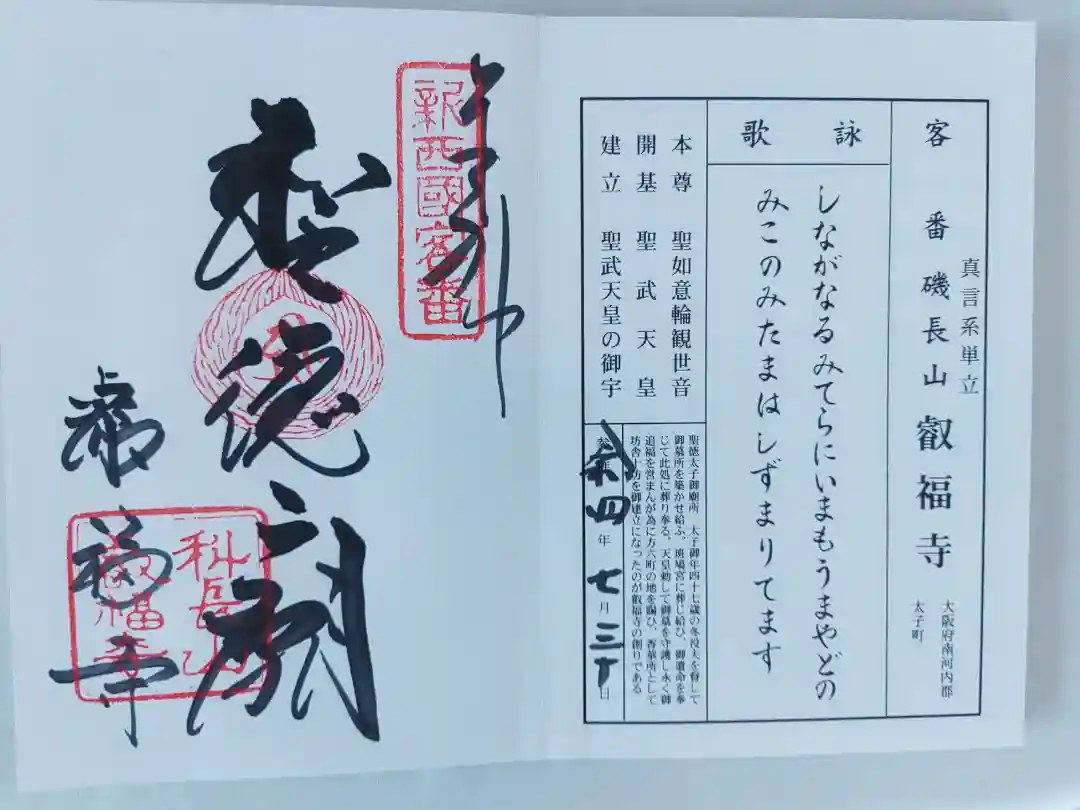 客番 磯長山 叡福寺
真言系単立
大阪府南河内郡
太子町
詠歌
しながなるみてらにいまもうまやどの
みこのみたまはしずまりてます
本尊 聖如意輪観世音
開基 聖武天皇
建立 聖武天皇の御宇
聖徳太子御廟所 太子御年四十七歳の冬役夫を督して
御墓所を築かせ給ふ。斑鳩宮に薨じ給ひ、御遺命を奉
じて此処に葬り奉る。天皇勅して御墓を守護し永く御
追福を営まんが為に方六町の地を賜ひ、香華所として
坊舎十坊を御建立になったのが叡福寺の創りである
四年七月三十日
新西國客番
聖徳廟
科長山
叡福寺
叡福寺